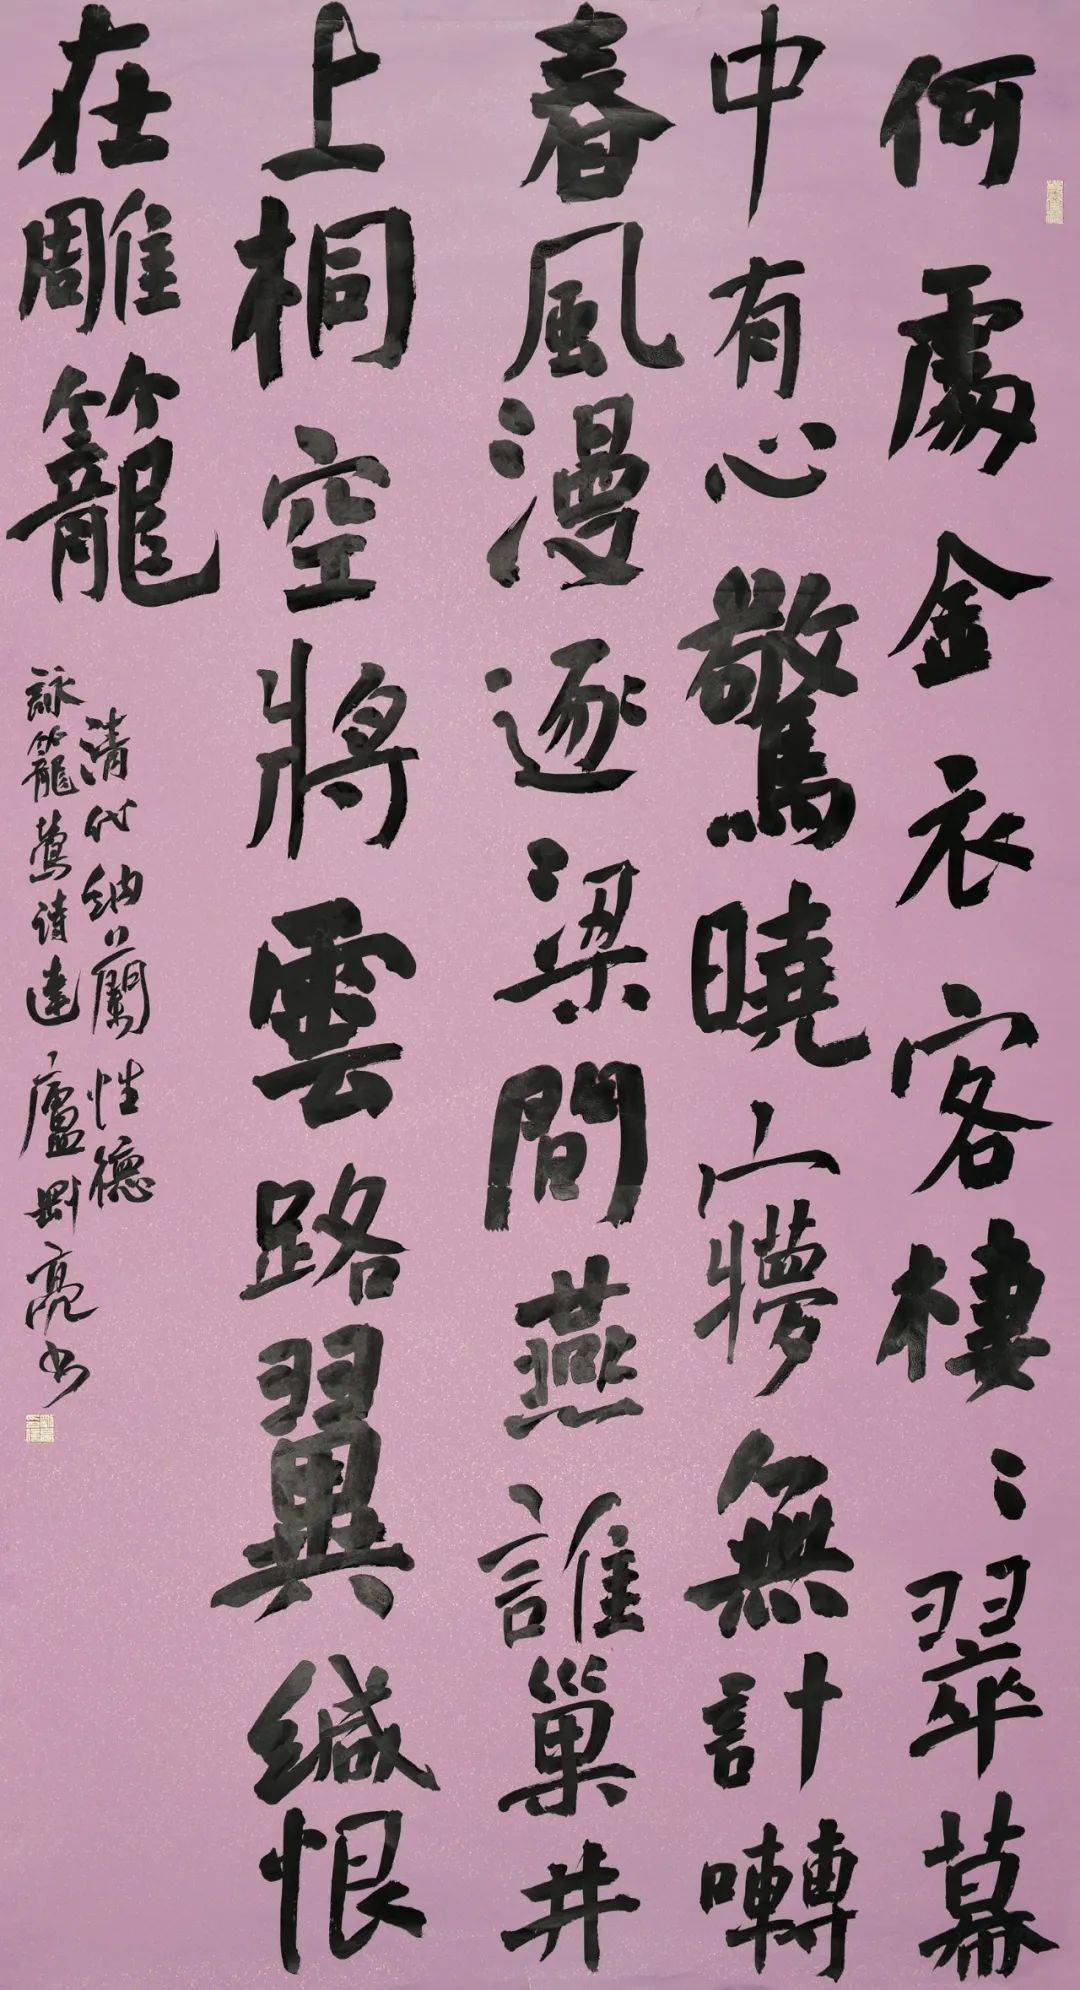 何處金衣客棲〻翠幕
中有心驚曉夢無計囀
春風漫逐梁間燕誰巢井
上桐空將雲路翼緘恨
在雕籠
清代納蘭性德
詠籠鶯詩達廬剛亮书